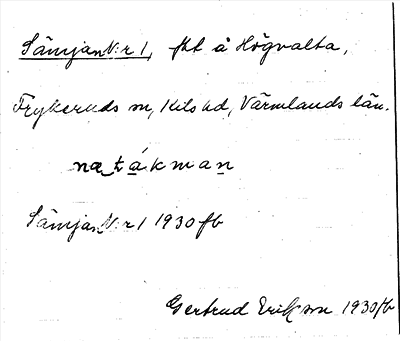 Sämjan N:r 1, fht å Högvalta,
Frykeruds sn, Kils hd, Värmlands län.
næ_tákman
Sämjan N:r 1 1930 fb
Gertrud Erikson 1930 fb